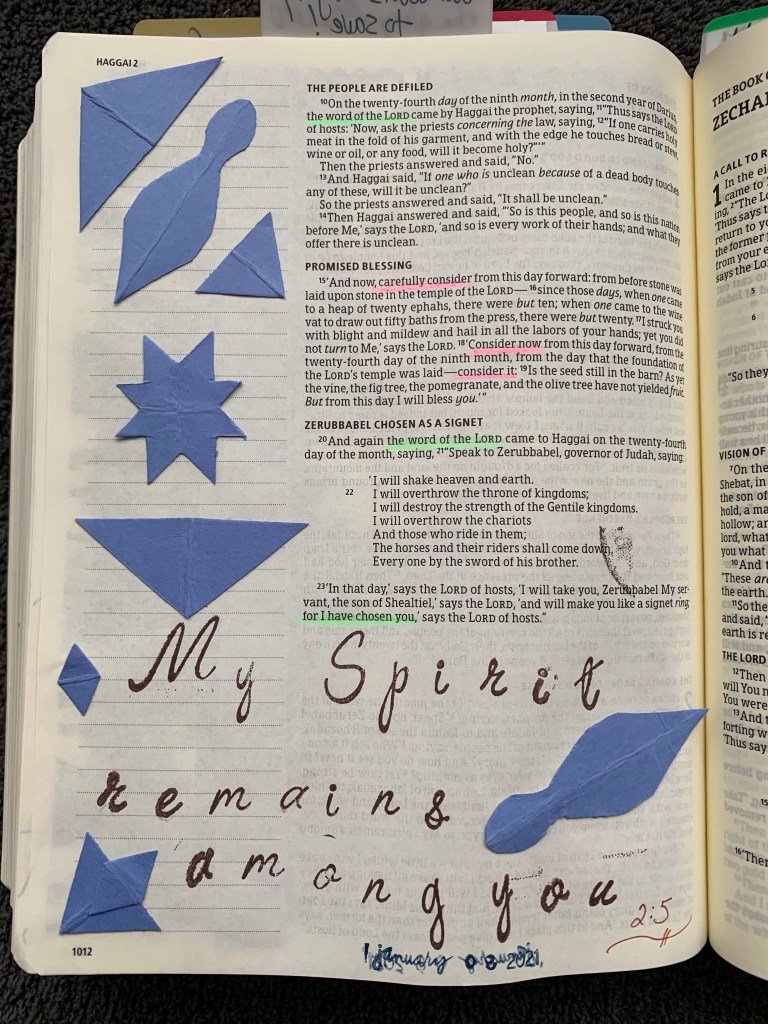 to save!
HAGGAI 2
THE PEOPLE ARE DEFILED
10On the twenty-fourth day of the ninth month, in the second year of Darius,
the word of the LORD came by Haggai the prophet, saying, 11"Thus says the LORD
of hosts: 'Now, ask the priests concerning the law, saying, 12"If one carries holy
meat in the fold of his garment, and with the edge he touches bread or stew,
wine or oil, or any food, will it become holy?"'"
Then the priests answered and said, "No."
13And Haggai said, "If one who is unclean because of a dead body touches
any of these, will it be unclean?"
So the priests answered and said, "It shall be unclean."
14Then Haggai answered and said, "'So is this people, and so is this nation
before Me,' says the LORD, 'and so is every work of their hands; and what they
offer there is unclean.
PROMISED BLESSING
15'And now, carefully consider from this day forward: from before stone was
laid upon stone in the temple of the LORD— 16since those days, when one came
to a heap of twenty ephahs, there were but ten; when one came to the wine
vat to draw out fifty baths from the press, there were but twenty. 17I struck you
with blight and mildew and hail in all the labors of your hands; yet you did
not turn to Me,' says the LORD. 18'Consider now from this day forward, from the
twenty-fourth day of the ninth month, from the day that the foundation of
the LORD's temple was laid—consider it: 19Is the seed still in the barn? As yet
the vine, the fig tree, the pomegranate, and the olive tree have not yielded fruit.
But from this day I will bless you.'"
ZERUBBABEL CHOSEN AS A SIGNET
20And again the word of the LORD came to Haggai on the twenty-fourth
day of the month, saying, 21"Speak to Zerubbabel, governor of Judah, saying:
'I will shake heaven and earth.
22 I will overthrow the throne of kingdoms;
I will destroy the strength of the Gentile kingdoms.
I will overthrow the chariots
And those who ride in them;
The horses and their riders shall come down,
Every one by the sword of his brother.
23'In that day,' says the LORD of hosts, 'I will take you, Zerubbabel My ser-
vant, the son of Shealtiel,' says the LORD, 'and will make you like a signet ring;
for I have chosen you,' says the LORD of hosts."
My Spirit
remains
among you
2:5
1012
january 08 2021
THE BOOK
ZECHA
A CALL TO R
1 In the ei
came to
ing, 2"The Lo
'Thus says t
return to yo
the former
from your e
says the Lo
5
6
"So they
VISION OF
7On the
Shebat, in
the son of
hold, a ma
hollow; an
lord, what
you what
10And t
"These are
the earth.
11So the
and said,
earth is re
THE LORD
12Then
will You n
You were
13And t
forting w
'Thus say
15
16"Ther